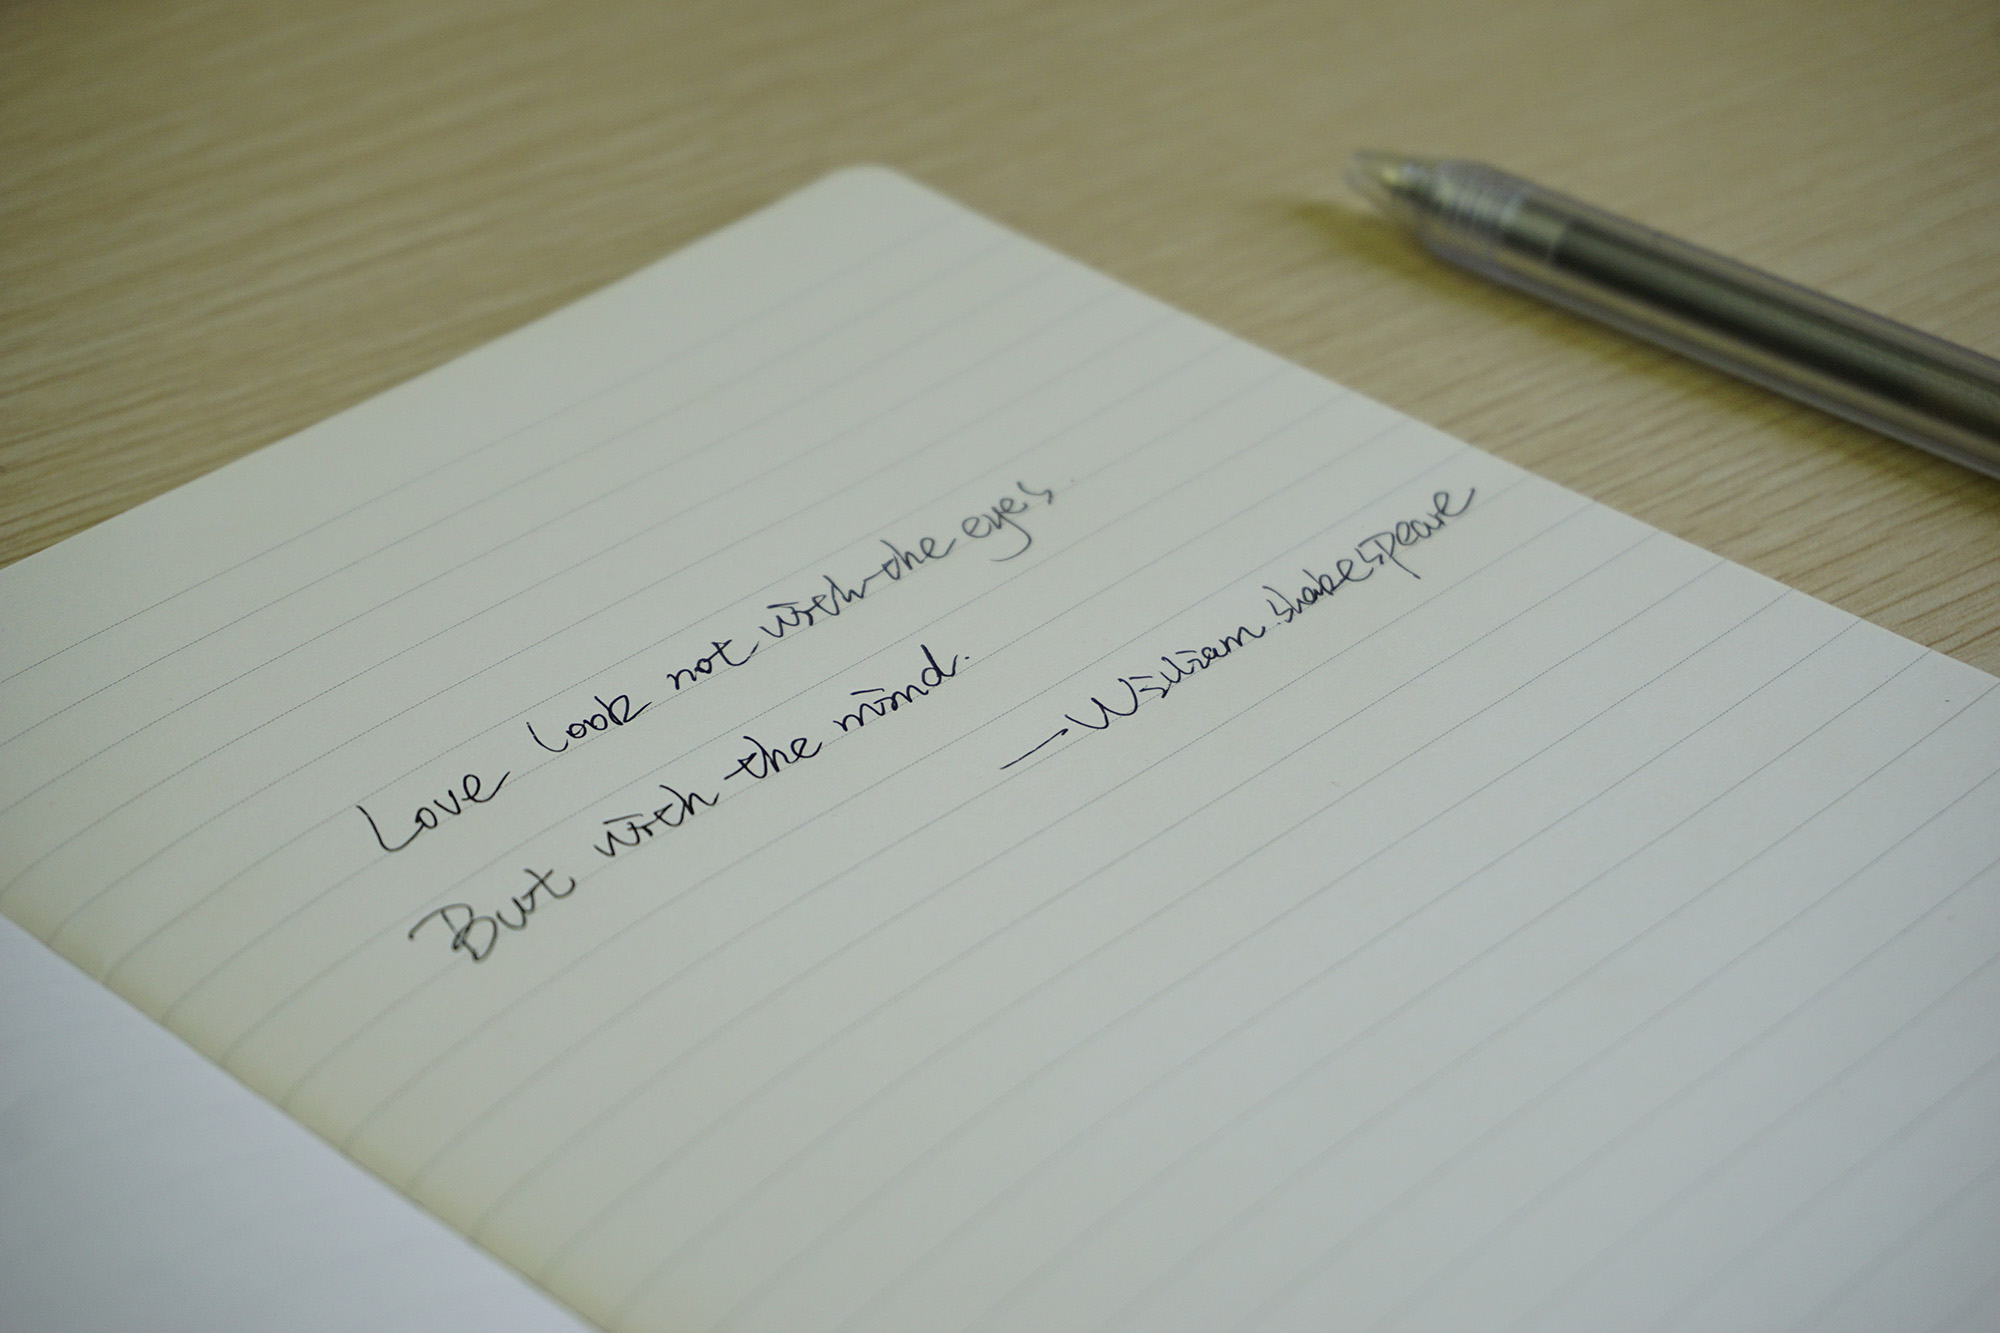 Love look not with the eyes
But with the mind.
—William shakespeare